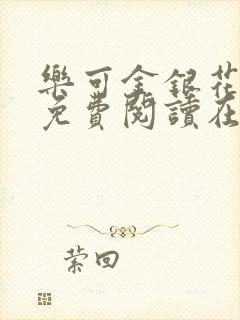 樂可金銀花
免費閱讀在
萦回